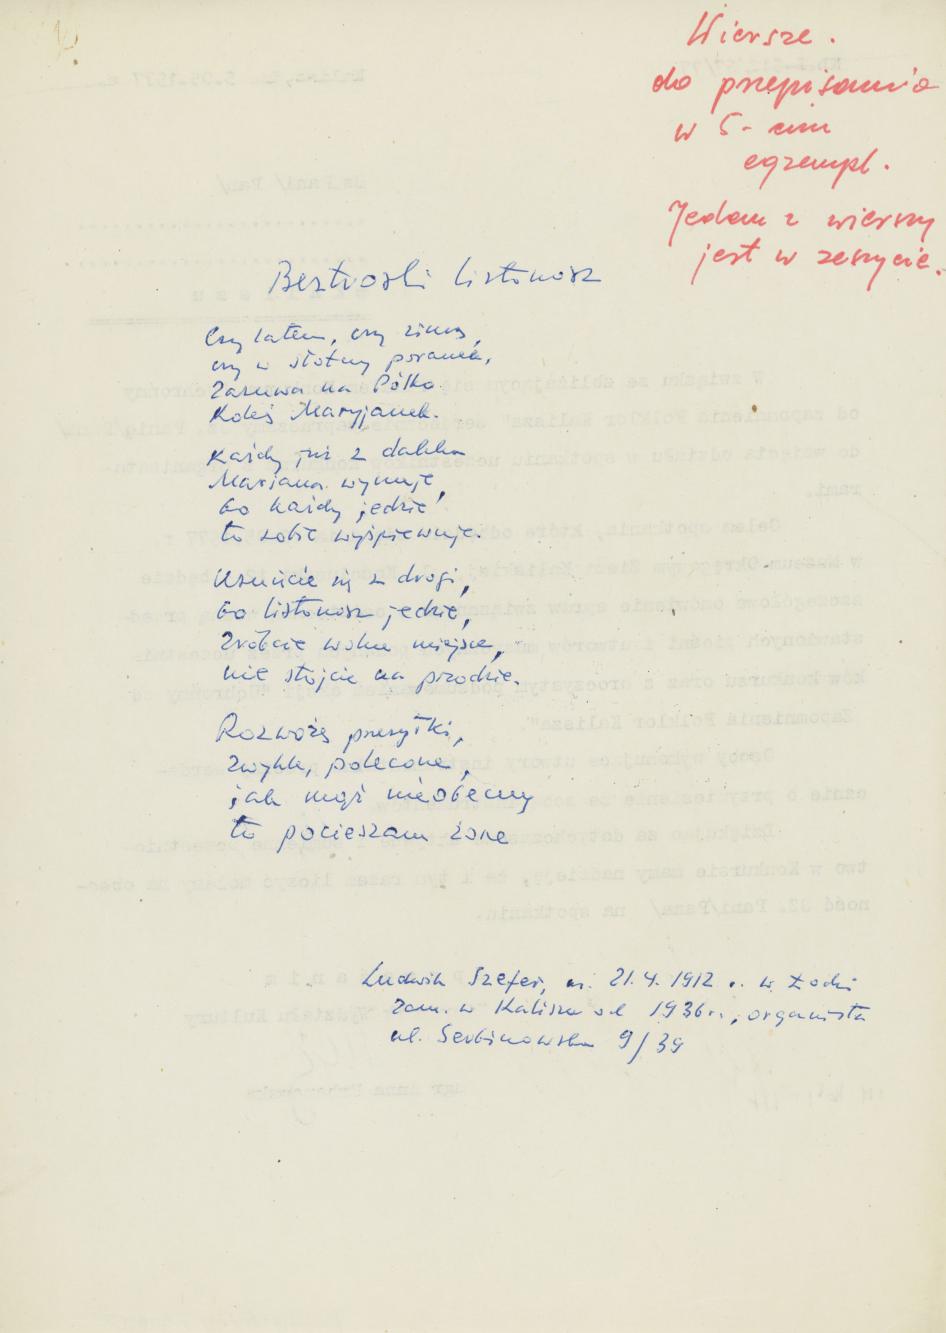 Wiersze.
do przepisania
w 5-ciu
egzempl.
Jeden z wierszy
jest w zeszycie.
Beztroski listonosz
Czy latem, czy zimą,
czy w słotny poranek,
Zasuwa na Pólko
Koleś Maryjanek.
Każdy już z daleka
Mariana wyjmuje,
bo każdy jedzie
to sobie wyśpiewuje.
Usuńcie się z drogi,
bo listonosz jedzie,
Zróbcie wolne miejsce,
nie stójcie na przodzie.
Rozwożę przesyłki,
zwykłe, polecone,
jak mąż nieobecny
to pocieszam żonę
Ludwik Szefer, ur. 21.4.1912 r. w Łodzi
zam. w Kaliszu od 1936 r., organista
ul. Serbinowska 9/39